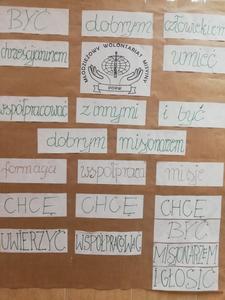 BYĆ dobrym człowiekiem
chrześcijaninem umieć
MŁODZIEŻOWY WOLONTARIAT MISYJNY
współpracować z innymi i być
dobrym misjonarzem
formacja współpraca misje
CHCĘ CHCĘ CHCĘ
UWIERZYĆ WSPÓŁPRACOWAĆ BYĆ
MISJONARZEM
I GŁOSIĆ